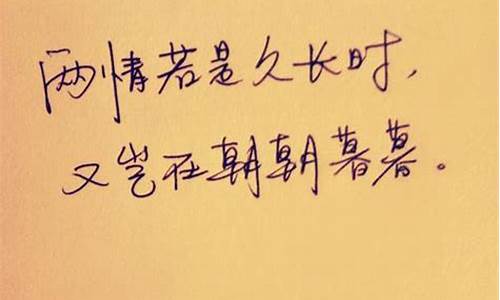 两情若是久长时，
又岂在朝朝暮暮。